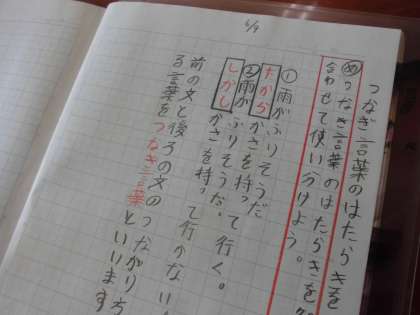 6/9
つなぎ言葉のはたらきを
め つなぎ言葉のはたらきを
合わせて使い分けよう。
① 雨がふりそうだ
だから かさを持って行く。
② 雨がふりそうな。
しかし かさを持って行かない
前の文と後ろの文のつながり方
る言葉をつなぎ言葉といいます